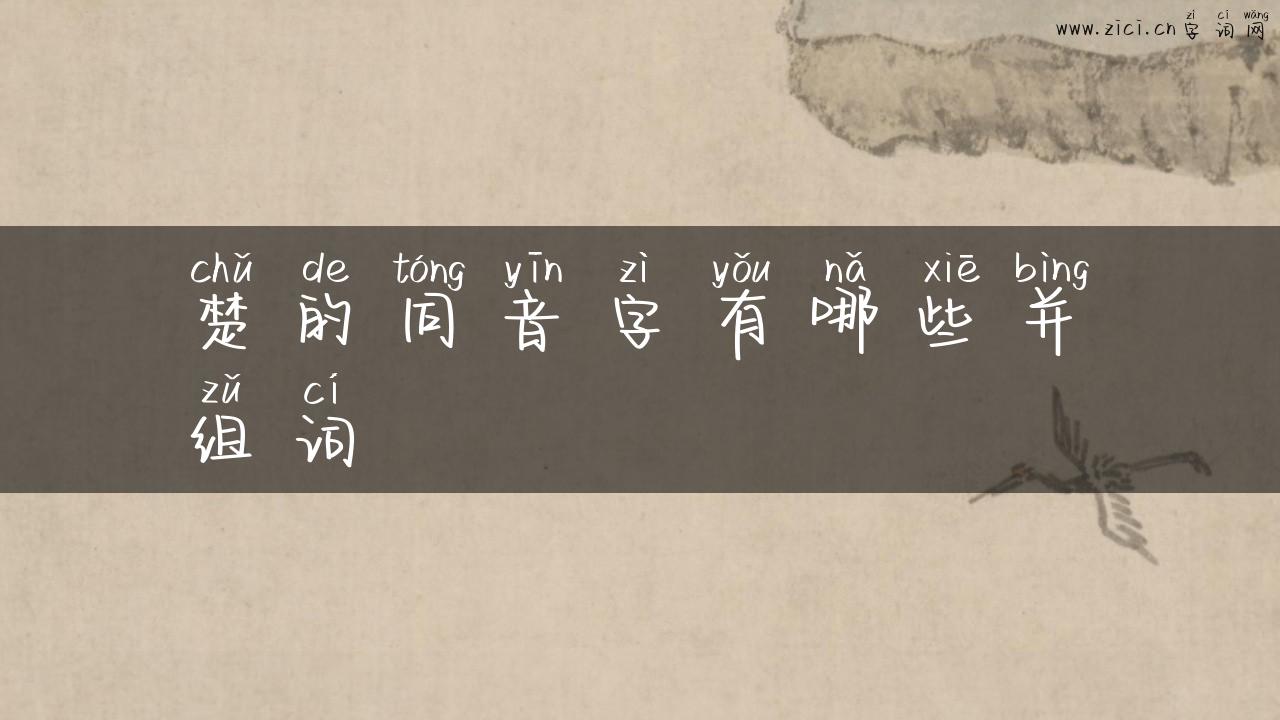 zì cí wǎng
www.zici.cn字词网
chǔ de tóng yīn zì yǒu nǎ xiē bìng
楚的同音字有哪些并
zǔ cí
组词